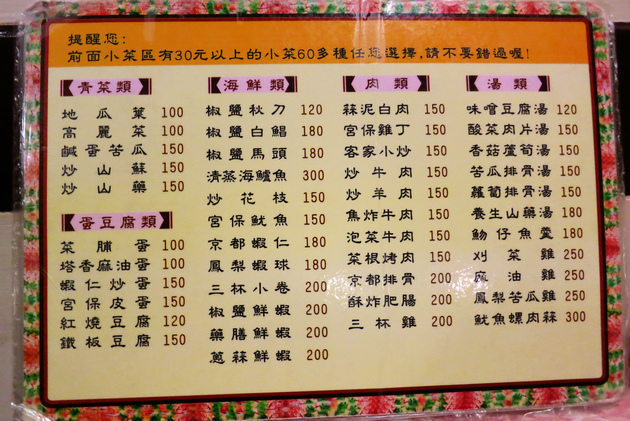 提醒您:
前面小菜區有30元以上的小菜60多種任您選擇,請不要錯過喔!
青菜類
地瓜葉 100
高麗菜 100
鹹蛋苦瓜 150
炒山蘇 150
炒山藥 150
蛋豆腐類
菜脯蛋 100
塔香麻油蛋 100
蝦仁炒蛋 150
宮保皮蛋 150
紅燒豆腐 120
鐵板豆腐 150
海鮮類
椒鹽秋刀 120
椒鹽白鯧 180
椒鹽馬頭 180
清蒸海鱸魚 300
炒花枝 150
宮保魷魚 150
京都蝦仁 180
鳳梨蝦球 180
三杯小卷 200
椒鹽鮮蝦 200
藥膳鮮蝦 200
蔥蒜鮮蝦 200
肉類
蒜泥白肉 150
宮保雞丁 150
客家小炒 150
炒牛肉 150
炒羊肉 150
焦炸牛肉 150
泡菜牛肉 150
菜根烤肉 150
京都排骨 200
酥炸肥腸 200
三杯雞 200
湯類
味噌豆腐湯 120
酸菜肉片湯 150
香菇蘆筍湯 150
苦瓜排骨湯 150
蘿蔔排骨湯 150
養生山藥湯 180
魩仔魚羹 180
刈菜雞 250
麻油雞 250
鳳梨苦瓜雞 250
魷魚螺肉蒜 300